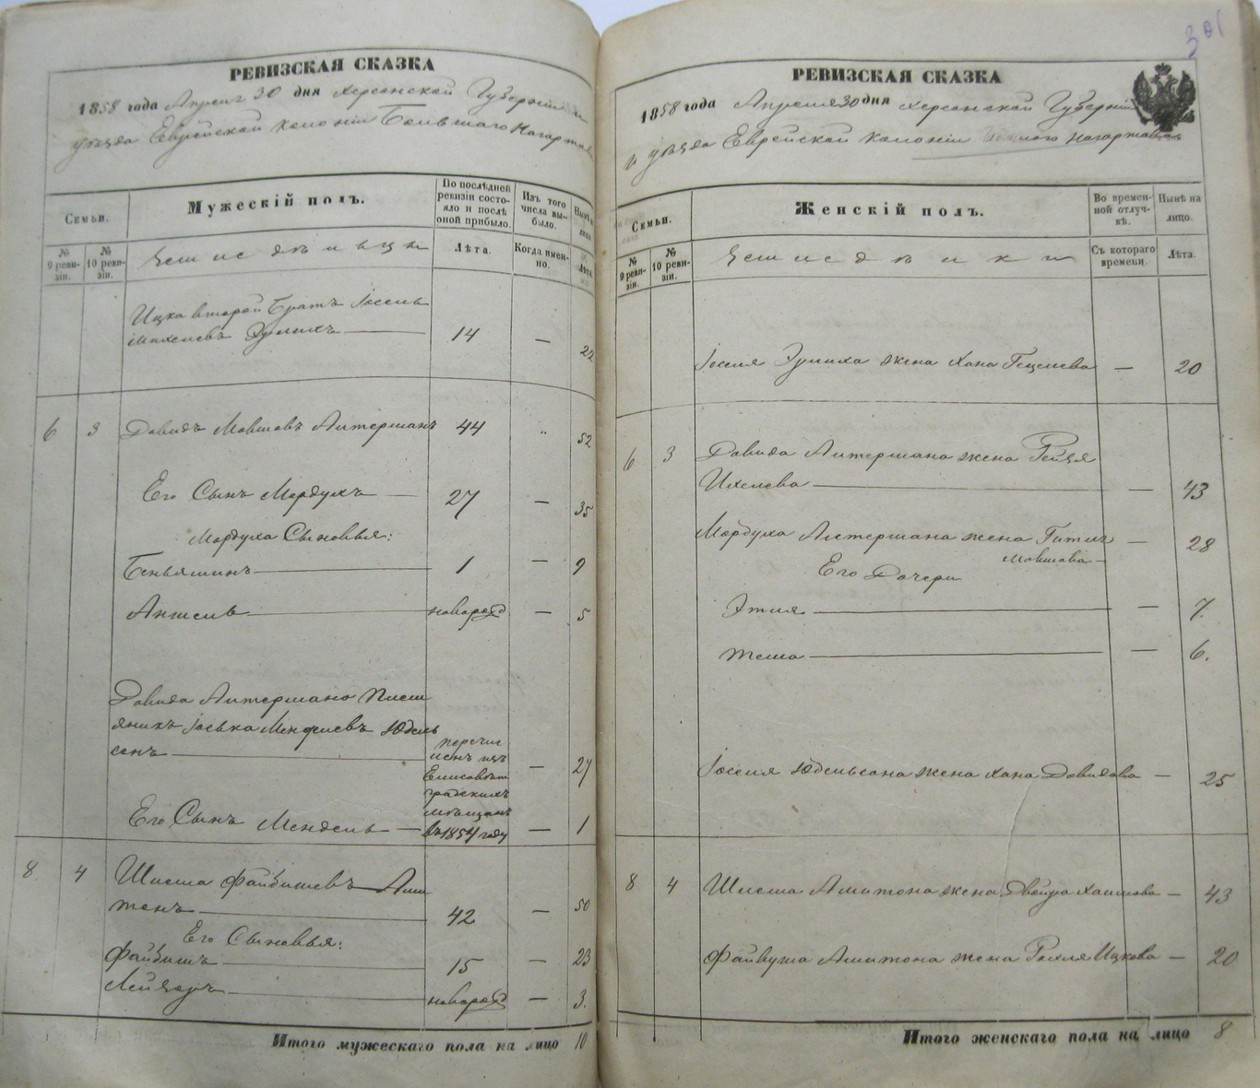 РЕВИЗСКАЯ СКАЗКА
1858 года Апреля 30 дня Херсонской Губерніи
уѣзда Еврейской колоніи Большаго Нагартава
Семьи.
Мужескій полъ.
По послѣдней ревизіи состояло и послѣ оной прибыло.
Изъ того числа выбыло.
№ 9 ревизіи.
№ 10 ревизіи.
Лѣта.
Когда именно.
Лѣта.
Ицка второй Братъ Іосель
Эрлихъ 14 — 22
6 3 Давидъ Мовшевъ Алтерманъ 44 „ 52
Его Сынъ Мордухъ — 27 — 35
Мордуха Сыновья:
Беньяминъ 1 — 9
Анчель новорожд — 5
Давида Алтермана Плем
яникъ Іоська Юдель
сонъ
перечис
ленъ изъ
Елисавет
градскихъ
мѣщанъ
въ 1854 году
— 27
Его Сынъ Мендель — — 1
8 4 Шлема Файвишевъ Ами
тонъ 42 — 50
Его Сыновья:
Файвишъ 15 — 23
Лейзоръ новорожд — 3.
Итого мужескаго пола на лицо 10
301
РЕВИЗСКАЯ СКАЗКА
1858 года Апреля 30 дня Херсонской Губерніи
уѣзда Еврейской колоніи Нагартава
Семьи.
Женскій полъ.
Во временной отлучкѣ.
Нынѣ на лицо.
№ 9 ревизіи.
№ 10 ревизіи.
Съ котораго времени.
Лѣта.
Іоселя Эрлиха жена Хана Гецелева — 20
6 3 Давида Алтермана жена Рейзя
Ихелева — 43
Мордуха Алтермана жена Гитля — 28
Мовшова
Его Дочери
Этля — 7.
— 6.
Іоселя Юдельсона жена Хана Давидова — 25
8 4 Шлема Амитона жена Двейра Хаимова — 43
Файвуша Амитона жена Рохля Ицкова — 20
Итого женскаго пола на лицо 8